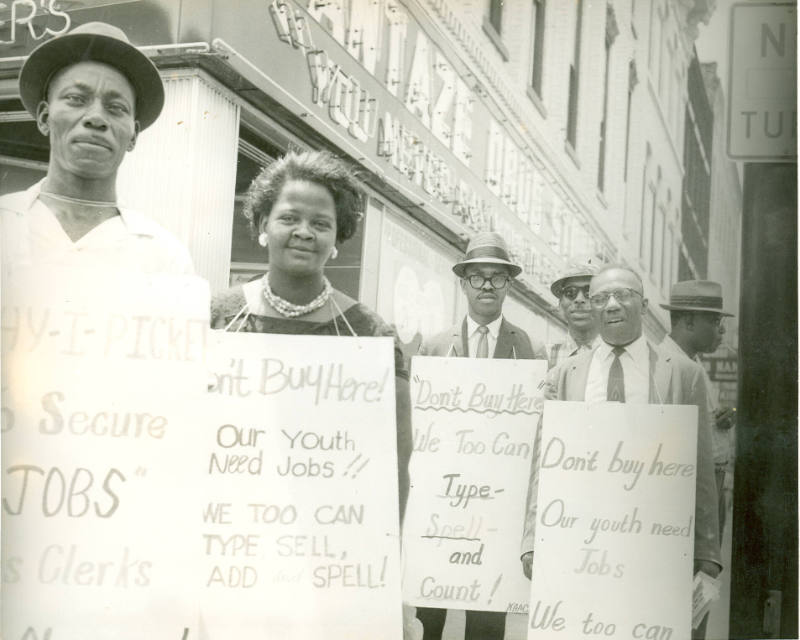 ER'S
ANTAZE DRUG
YOU
N
TU
HY-I-PICKET
o Secure
JOBS"
s Clerks
on't Buy Here!
Our Youth
Need Jobs!!
WE TOO CAN
TYPE SELL,
ADD and SPELL!
"Don't Buy Here"
We Too Can
Type-
Spell-
and
Count!
NAAC
Don't buy here
Our youth need
Jobs
We too can